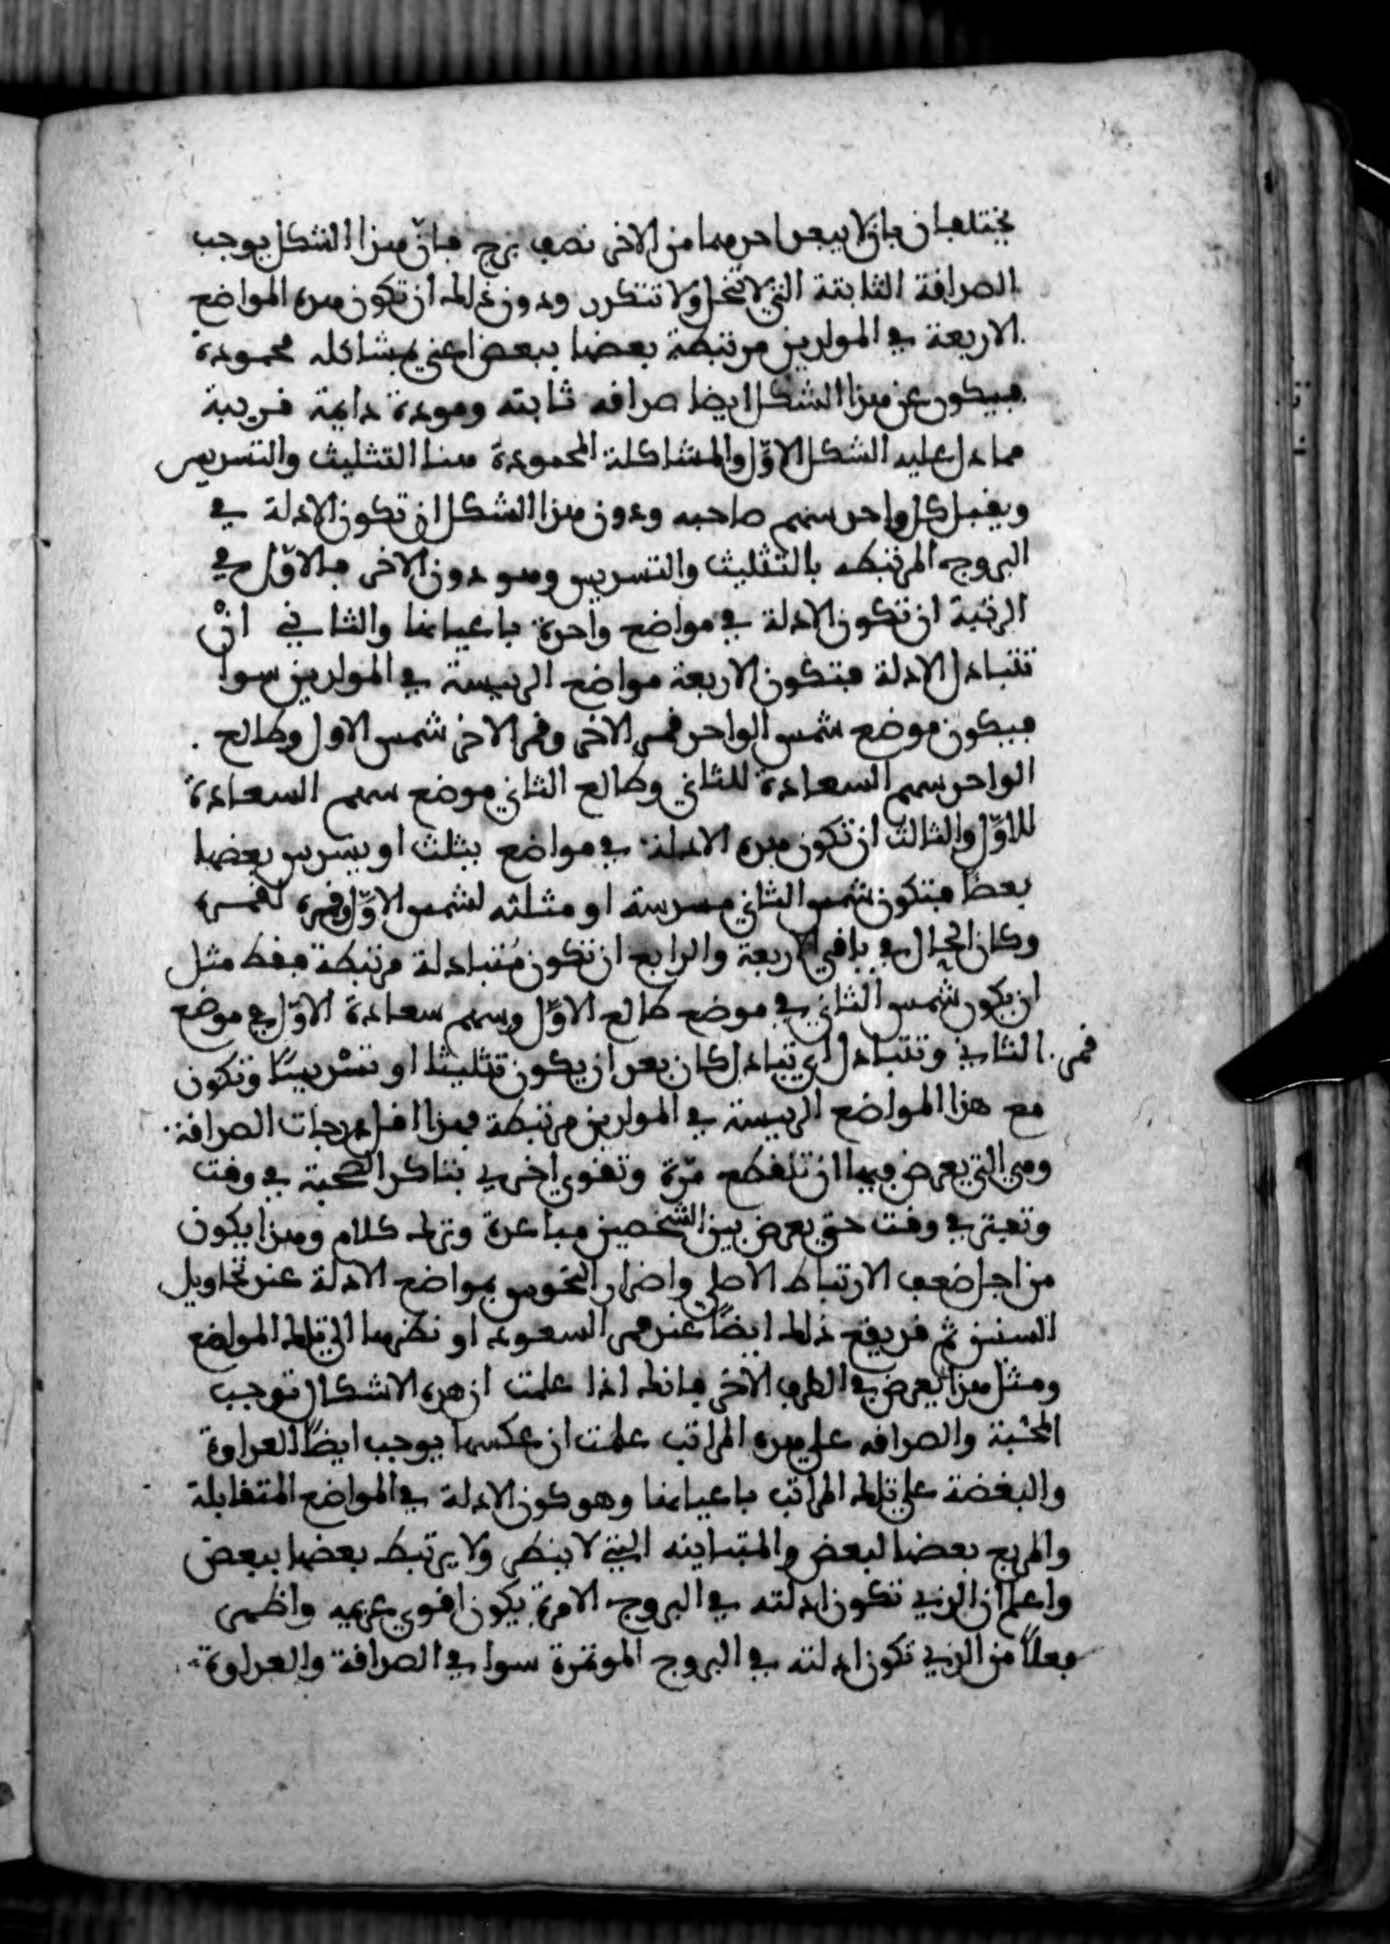 يختلفان بان لا يبعد احدهما من الاخر نصف برج فان هذا الشكل يوجب
الصداقة الثابتة التي لا تنحل ولا تتكرر ودون ذلك ان تكون هذه المواضع
الاربعة في المولدين مرتبطة بعضها ببعض اعني بمشاكله محمودة
فيكون عن هذا الشكل ايضا صداقه ثابته ومودة دايمة قريبة
مما دل عليه الشكل الاوّل والمشاكلة المحمودة هنا التثليث والتسديس
ويقبل كل واحد منهم صاحبه ودون هذا الشكل ان تكون الادلة في
البروج المرتبطه بالتثليث والتسديس وهو دون الاخر فالاوّل في
الرتبة ان تكون الادلة في مواضع واحدة باعيانها والثاني انْ
تتبادل الادلة فتكون الاربعة مواضع الرييسة في المولدين سوا
فيكون موضع شمس الواحد قمر الاخر وقمر الاخر شمس الاول وطالع
الواحد سهم السعادة للثاني وطالع الثاني موضع سهم السعادة
للاوّل والثالث ان تكون هذه الادلة في مواضع يثلث او يسدس بعضها
بعضًا فتكون شمس الثاني مسدسة او مثلثه لشمس الاوّل وقمره لقمره
وكان الحال في باقي الاربعة والرابع ان تكون مُتبادلة مرتبطة فقط مثل
ان يكون شمس الثاني في موضع طالع الاوّل وسهم سعادة الاوّل في موضع
قمر الثاني وتتبادل اي تبادل كان بعد ان يكون تثليثا او تسْديسًا وتكون
مع هذا المواضع الرييسة في المولدين مرتبطة فهذا اقل درجات الصداقة
وهي التي يعرض فيها ان تنقطع مرّة وتقوي اخري بتذاكر الصحبة في وقت
وتفتر في وقت حتي يعرض بين الشخصين مباعدة وترك كلام وهذا يكون
من اجل ضعف الارتباط الاصلي واضرار النحوس بمواضع الادلة عند تحاويل
السنين ثم قد يقع ذلك ايضًا عند ممر السعود او نظرها الي تلك المواضع
ومثل هذا يعرض في الطرف الاخر فانك اذا علمت ان هذه الاشكال توجب
المحبة والصداقه علي هذه المراتب علمت ان عكسها يوجب ايضًا العداوة
والبغضة علي تلك المراتب باعيانها وهو كون الادلة في المواضع المتقابلة
والمربع بعضها لبعض والمتباينه التي لا ينظر ولا يرتبط بعضها ببعض
واعلم ان الذي تكون ادلته في البروج الامرة يكون اقوي عزيمه واظهر
فعلاً من الذي تكون ادلته في البروج الموتمرة سوا في الصداقة والعداوة